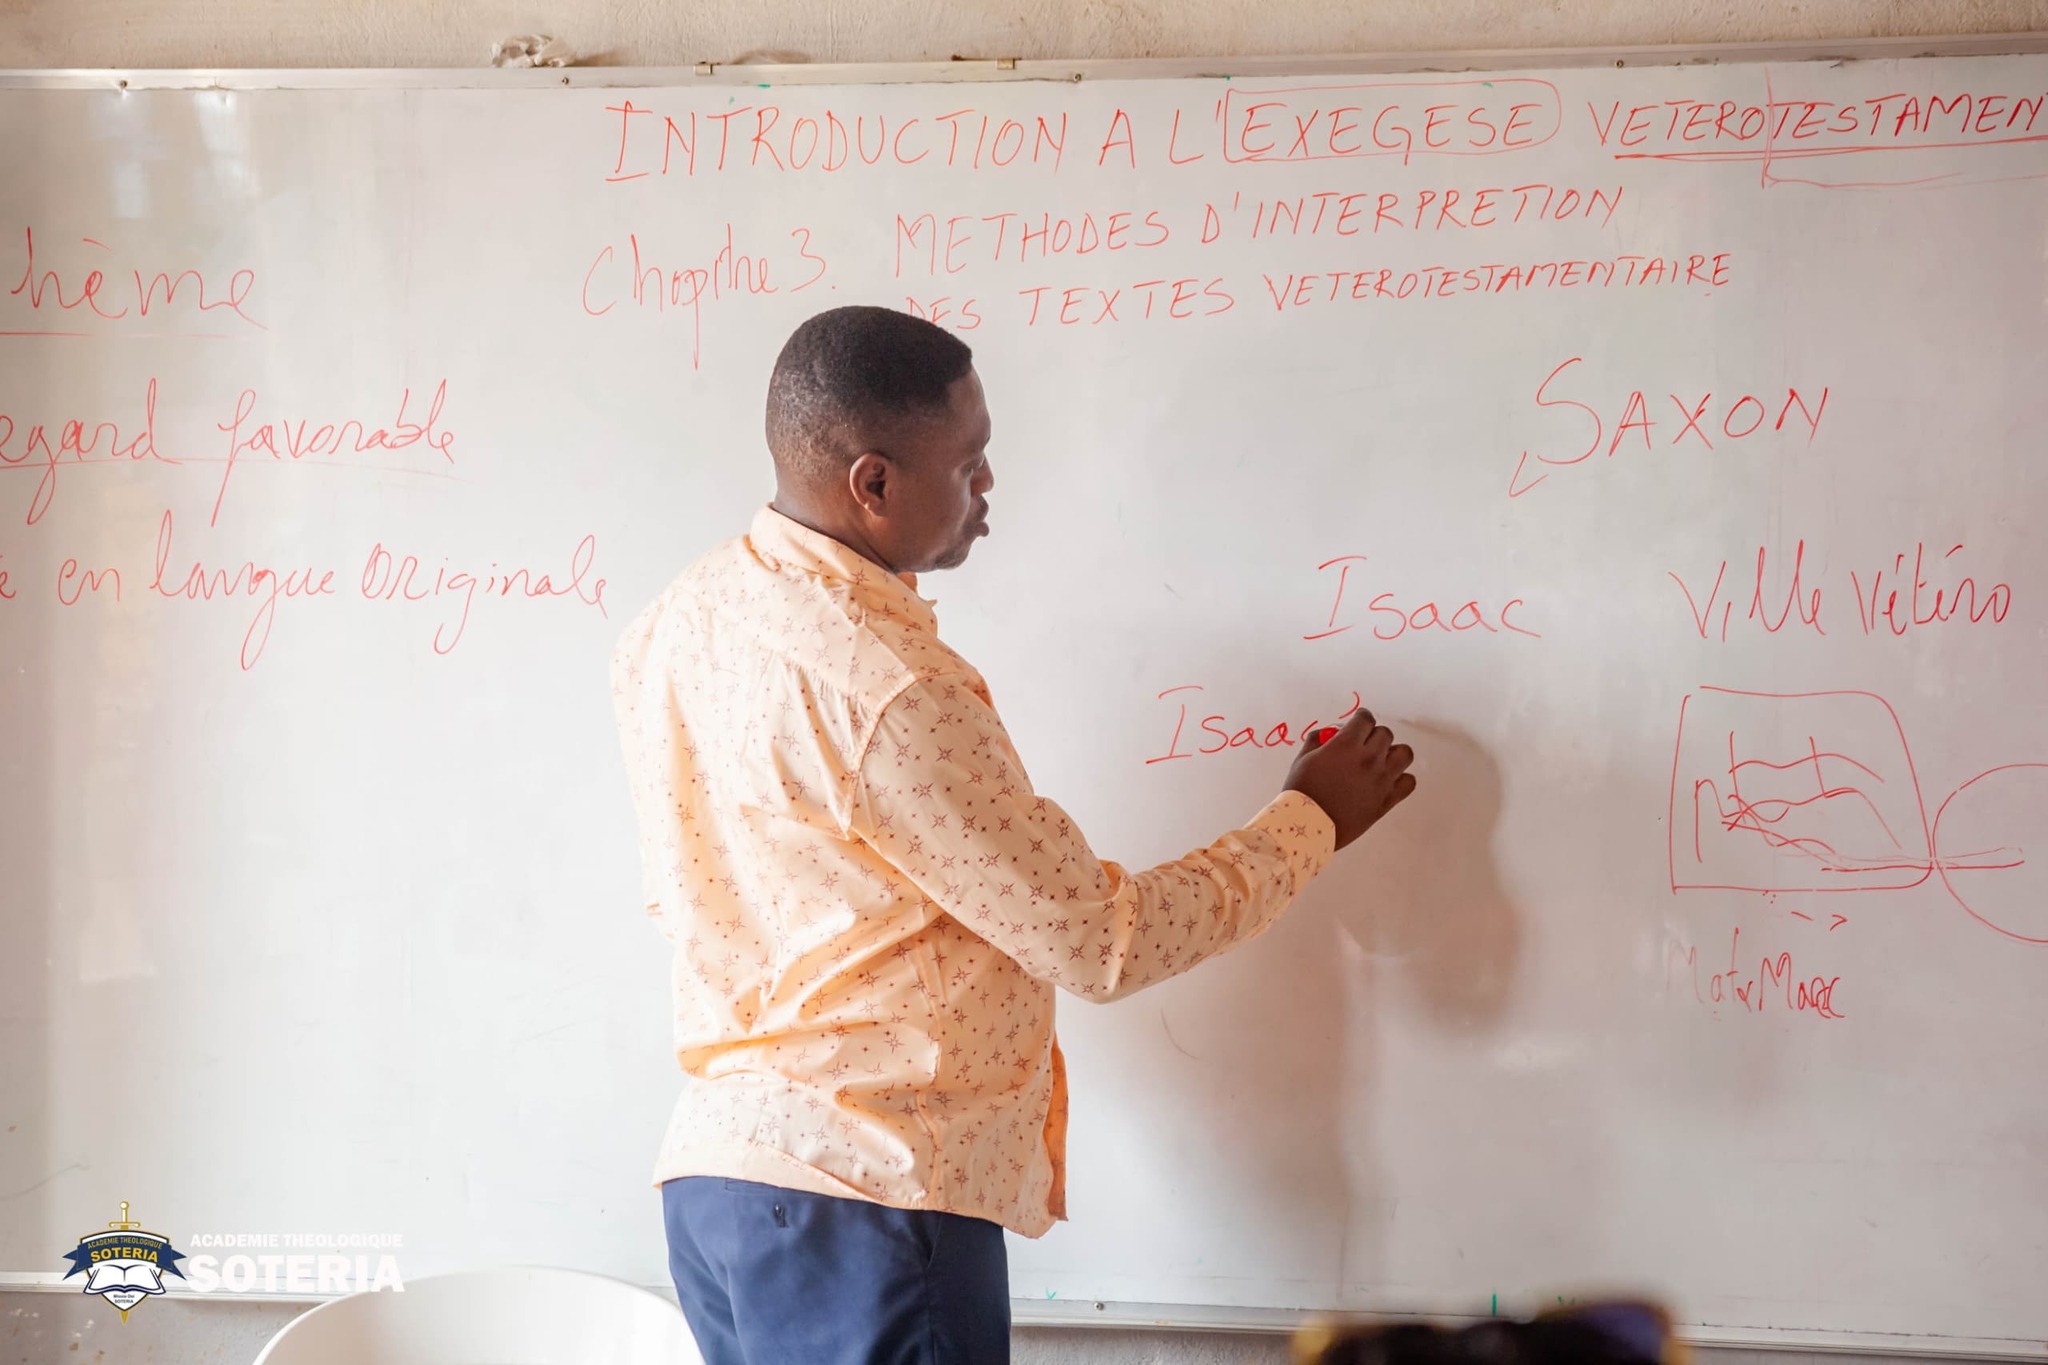 INTRODUCTION A L'EXEGESE VETEROTESTAMEN
Chapitre 3. METHODES D'INTERPRETION
DES TEXTES VETEROTESTAMENTAIRE
hème
egard favorable
en langue originale
SAXON
Isaac
Isaac'
Ville Vétéro
ACADEMIE THEOLOGIQUE
SOTERIA
ACADEMIE THEOLOGIQUE
SOTERIA